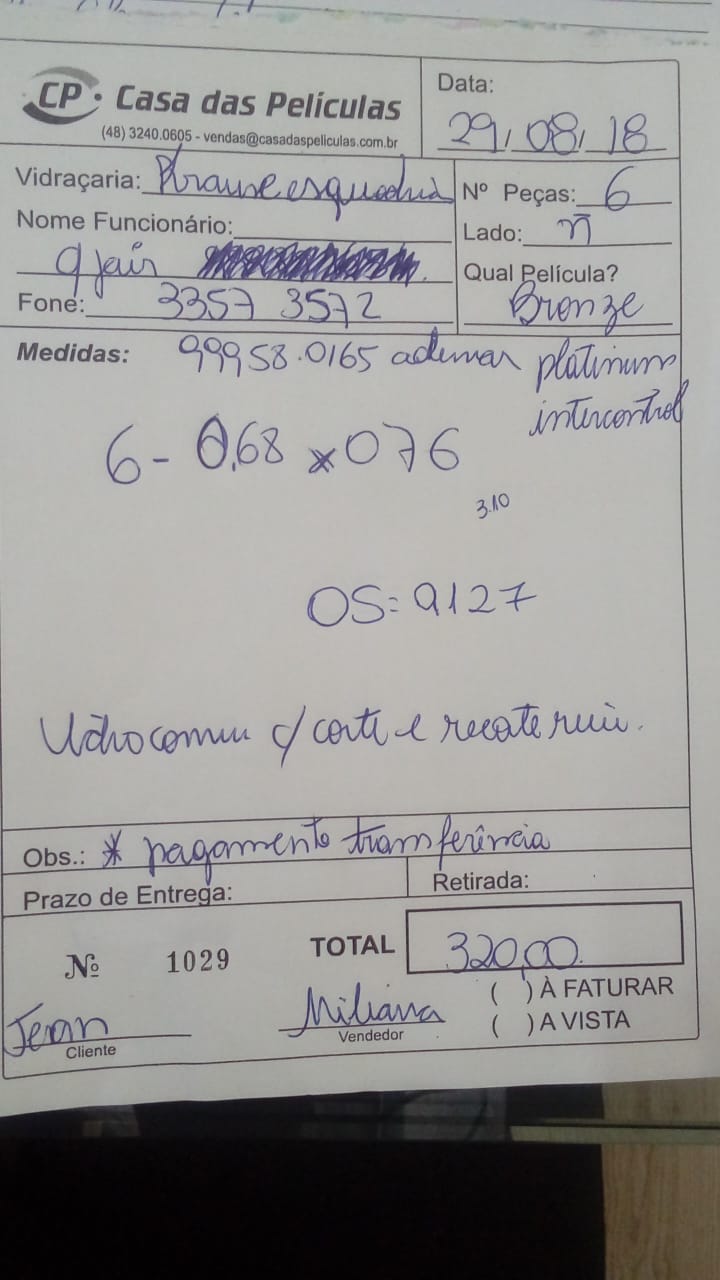 CP. Casa das Películas
(48) 3240.0605 - vendas@casadaspeliculas.com.br
Data:
29/08/18
Vidraçaria: Krause esquadria
Nº Peças: 6
Nome Funcionário:
Lado: ñ
Qual Película?
Bronze
Fone: 3357 3572
Medidas: 99958.0165 ademar platinum
intercontrol
6 - 0,68 x 076
3.10
OS = 9127
Vidro comum c/ corte e recorte
Obs.: * pagamento transferência
Prazo de Entrega:
Retirada:
Nº 1029
TOTAL 320,00
( ) À FATURAR
( ) A VISTA
Jean
Cliente
Miliana
Vendedor